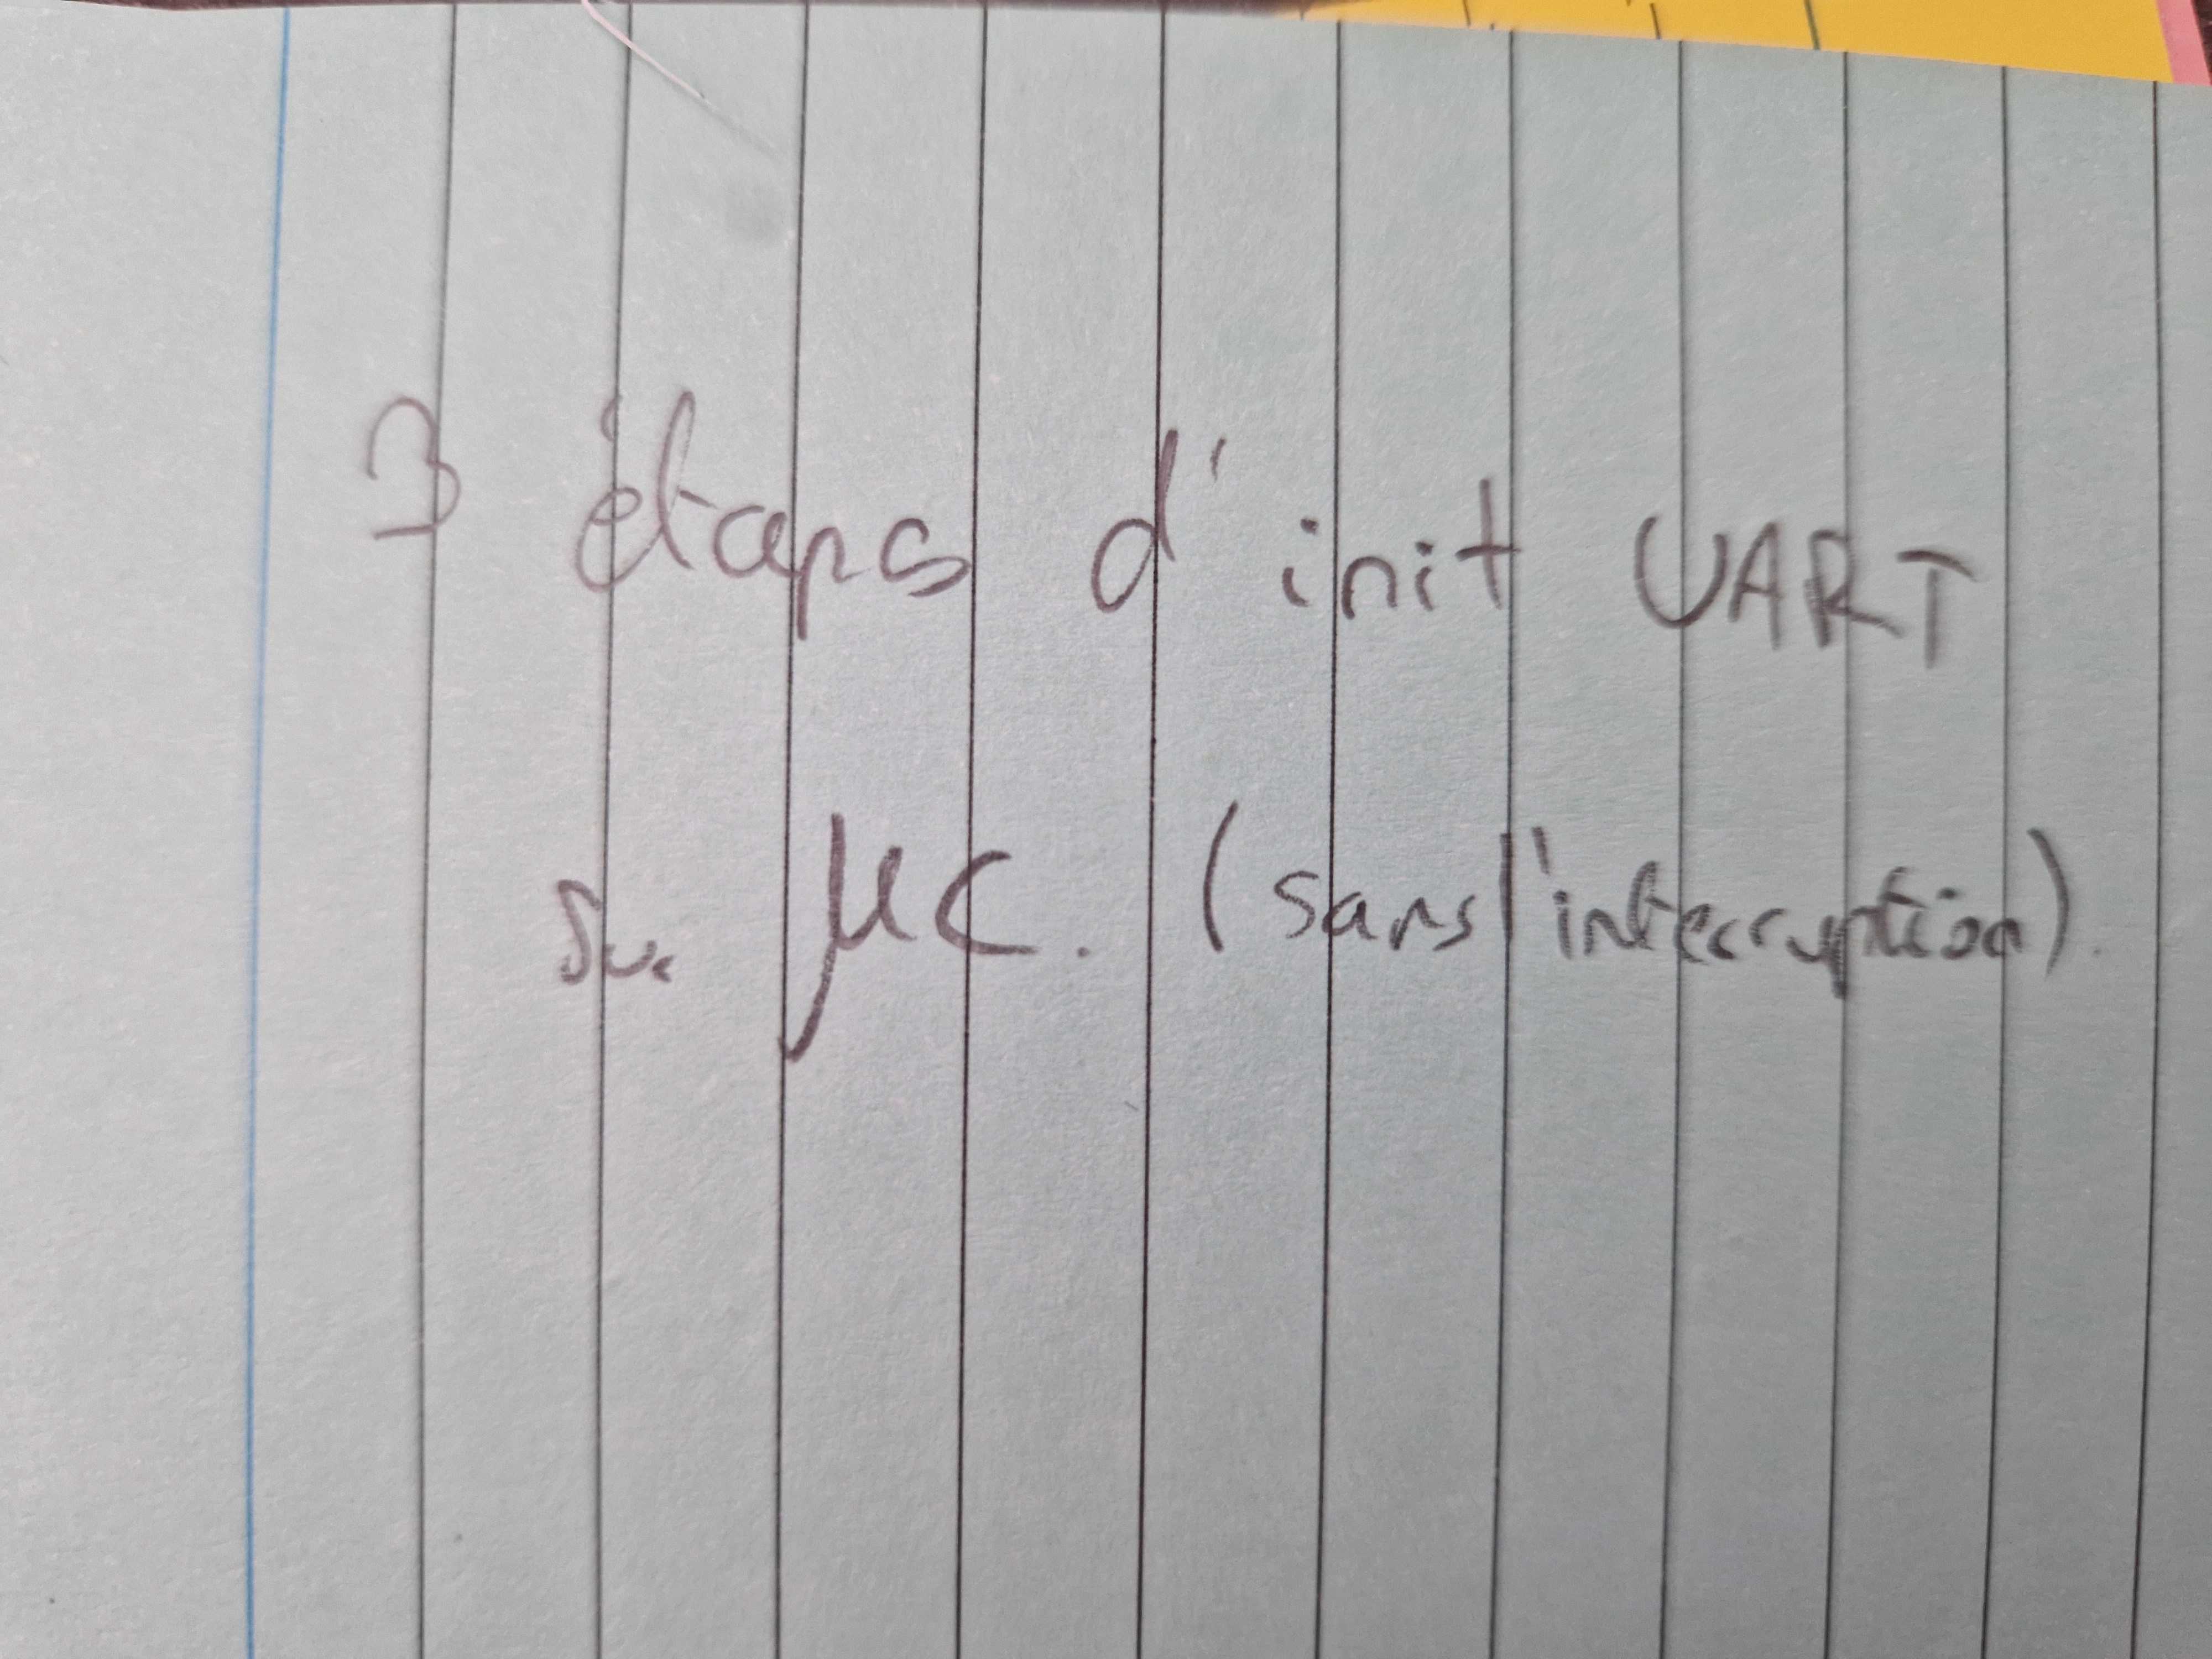 3 étapes d'init UART
sur µC. (sans l'interruption).